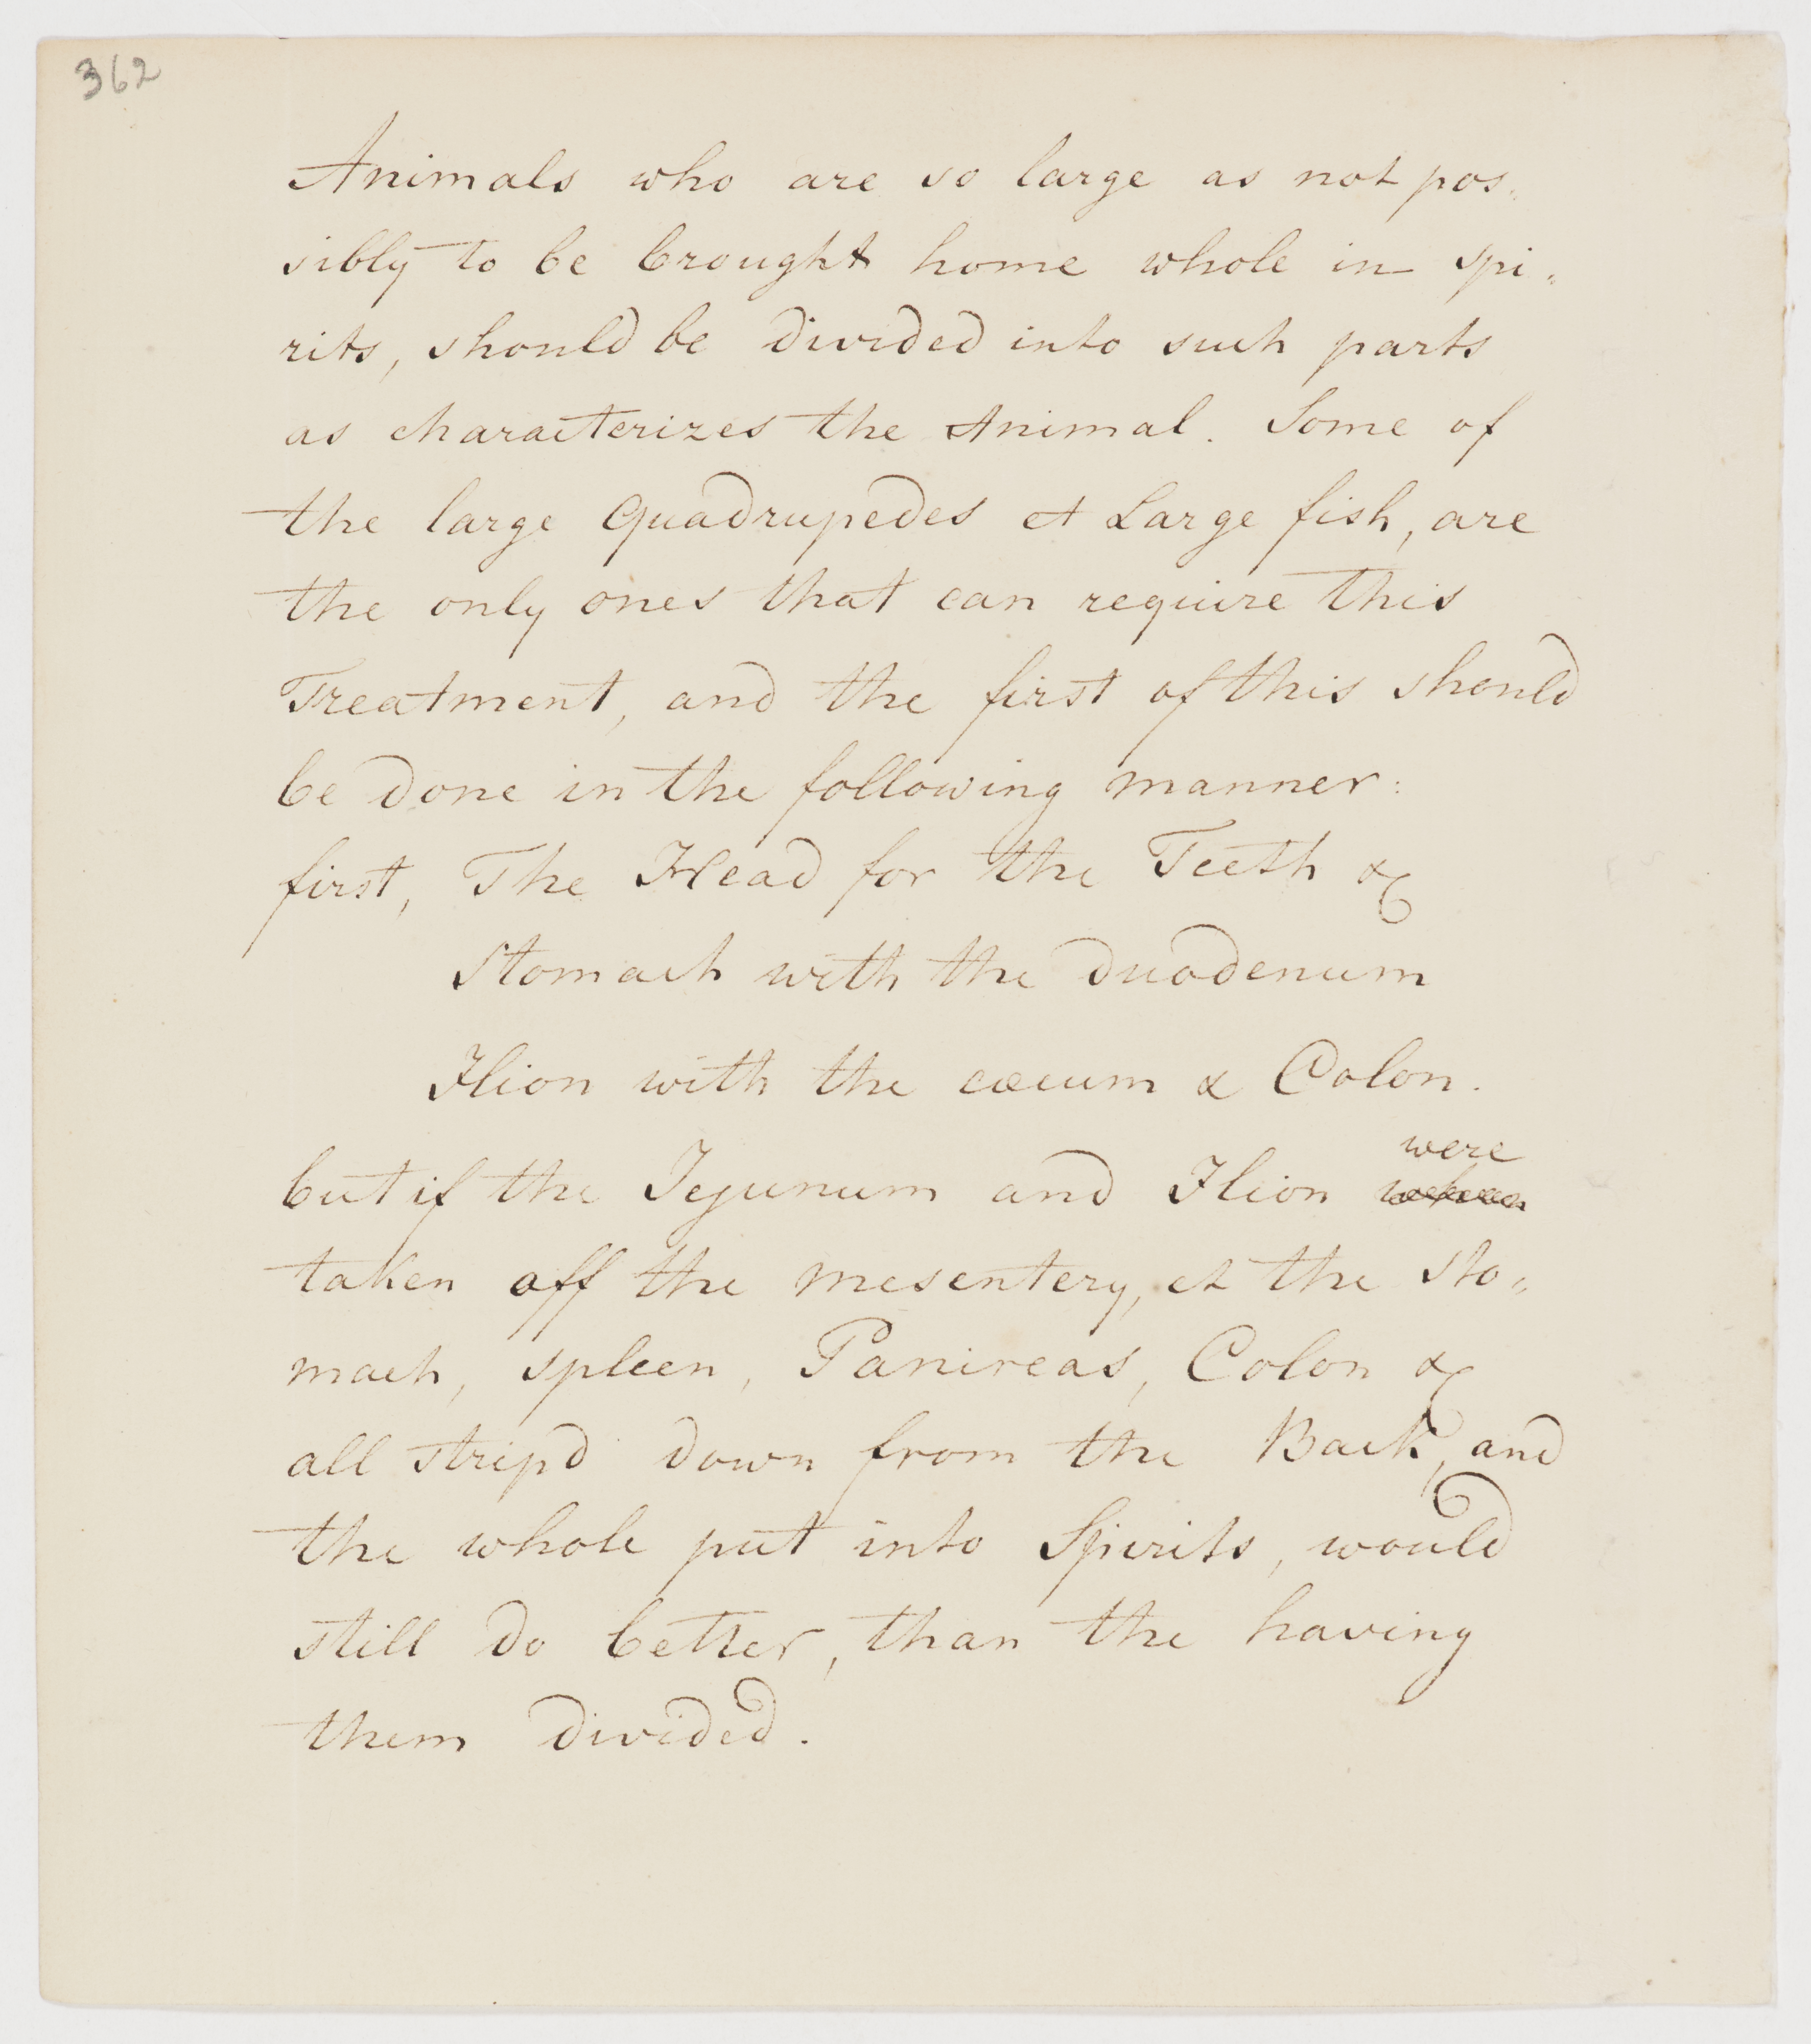 362
Animals who are so large as not pos=
sibly to be brought home whole in spi=
rits, should be divided into such parts
as characterizes the Animal. Some of
the large Quadrupedes et Large fish, are
the only ones that can require this
Treatment, and the first of this should
be done in the following manner:
first, The Head for the Teeth &c
Stomach with the Duodenum
Ilion with the cæcum & Colon.
were
but if the Jejunum and Ilion
taken off the mesentery, et the sto=
mach, spleen, Pancreas, Colon &c
all strip'd down from the Back, and
the whole put into Spirits, would
still do better, than the having
them divided.